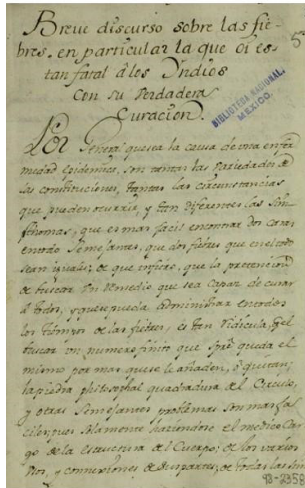 Breve discurso sobre las fie-
bres, en particular la que oi es
tan fatal á los Yndios
con su verdadera
Curacion.
5
BIBLIOTECA NACIONAL
MEXICO.
Por General que sea la causa de una enfer
medad Epidemica, son tantas las variedades de
las constituciones, tantas las circunstancias
que pueden ocurrir, y tan diferentes los Sin-
thomas, que es mas facil encontrar dos caras
en todo Semejantes, que dos fiebres que en el todo
sean iguales; de que infiere, que la pretencion
de buscar Un Remedio que sea capaz de curar
á todos, y que se pueda administrar en todos
los tiempos de las fiebres, es tan ridicula, qe el
buscar un numero finito que queda el
mismo por mas que se le añadan, ó quitan;
la piedra philosophal quadradura del Circulo,
y otros Semejantes problemas son mas fa
ciles, pues solamente haziendose el medico Car
go de la estructura del Cuerpo; de los varios
y connexiones de sus partes; de todas las
93-2358